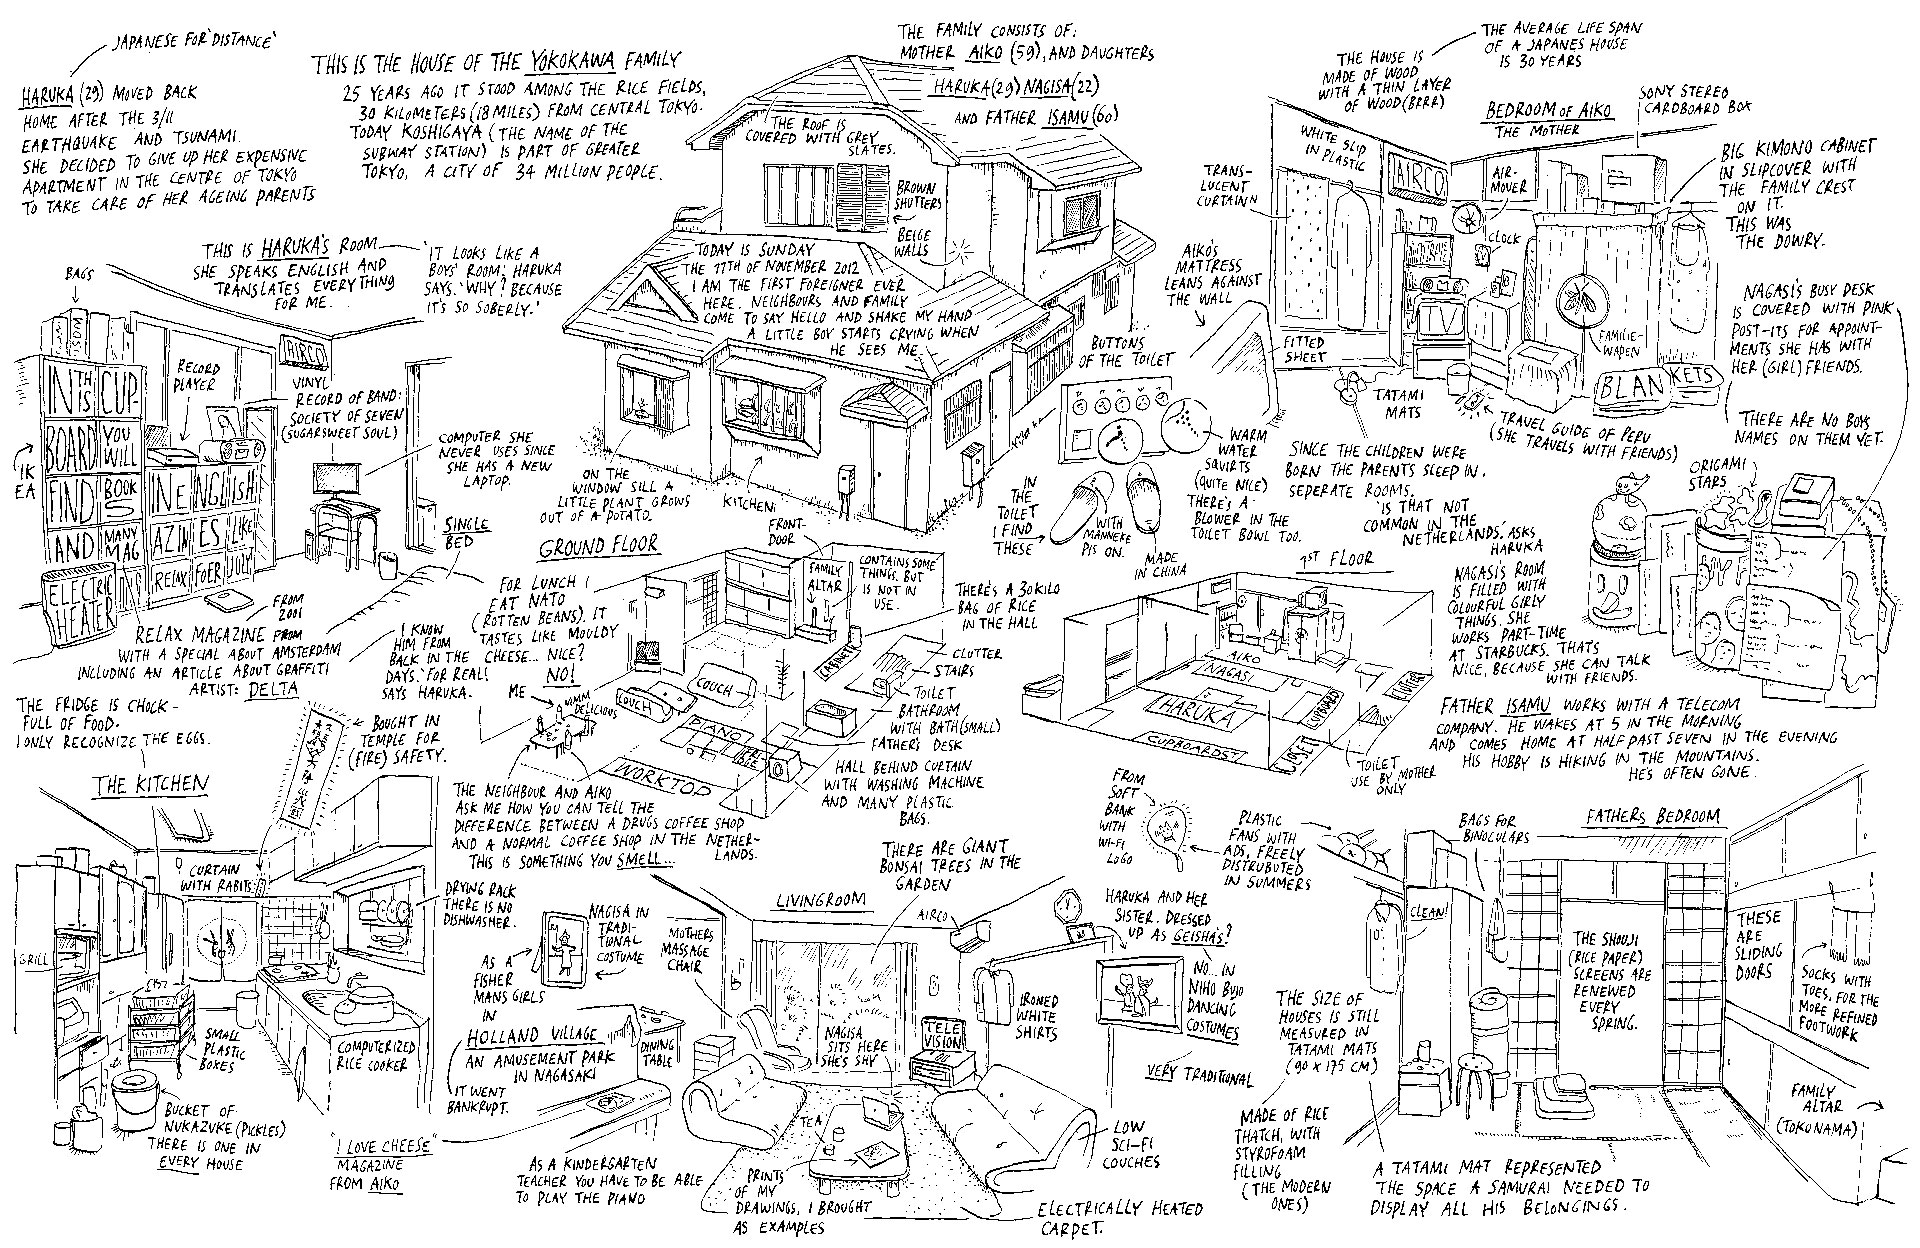 JAPANESE FOR 'DISTANCE'
HARUKA (29) MOVED BACK
HOME AFTER THE 3/11
EARTHQUAKE AND TSUNAMI.
SHE DECIDED TO GIVE UP HER EXPENSIVE
APARTMENT IN THE CENTRE OF TOKYO
TO TAKE CARE OF HER AGEING PARENTS
THIS IS THE HOUSE OF THE YOKOKAWA FAMILY
25 YEARS AGO IT STOOD AMONG THE RICE FIELDS,
30 KILOMETERS (18 MILES) FROM CENTRAL TOKYO.
TODAY KOSHIGAYA (THE NAME OF THE
SUBWAY STATION) IS PART OF GREATER
TOKYO, A CITY OF 34 MILLION PEOPLE.
THE FAMILY CONSISTS OF:
MOTHER AIKO (59), AND DAUGHTERS
HARUKA (29) NAGISA (22)
AND FATHER ISAMU (60)
THE ROOF IS
COVERED WITH GREY
SLATES.
BROWN
SHUTTERS
BEIGE
WALLS
TODAY IS SUNDAY
THE 11TH OF NOVEMBER 2012
I AM THE FIRST FOREIGNER EVER
HERE. NEIGHBOURS AND FAMILY
COME TO SAY HELLO AND SHAKE MY HAND
A LITTLE BOY STARTS CRYING WHEN
HE SEES ME.
ON THE
WINDOW SILL A
LITTLE PLANT GROWS
OUT OF A POTATO.
KITCHEN
FRONT-
DOOR
THE HOUSE IS
MADE OF WOOD
WITH A THIN LAYER
OF WOOD (BRRR)
THE AVERAGE LIFE SPAN
OF A JAPANES HOUSE
IS 30 YEARS
BEDROOM OF AIKO
THE MOTHER
SONY STEREO
CARDBOARD BOX
WHITE SLIP
IN PLASTIC
AIRCO
AIR-
MOVER
CLOCK
TV
TRANS-
LUCENT
CURTAINN
BIG KIMONO CABINET
IN SLIPCOVER WITH
THE FAMILY CREST
ON IT.
THIS WAS
THE DOWRY.
AIKO'S
MATTRESS
LEANS AGAINST
THE WALL
FITTED
SHEET
FAMILIE-
WAPEN
BLANKETS
TATAMI
MATS
TRAVEL GUIDE OF PERU
(SHE TRAVELS WITH FRIENDS)
NAGASI'S BUSY DESK
IS COVERED WITH PINK
POST-ITS FOR APPOINT-
MENTS SHE HAS WITH
HER (GIRL) FRIENDS.
THERE ARE NO BOYS
NAMES ON THEM YET.
ORIGAMI
STARS
SINCE THE CHILDREN WERE
BORN THE PARENTS SLEEP IN
SEPERATE ROOMS.
'IS THAT NOT
COMMON IN THE
NETHERLANDS,' ASKS
HARUKA
BUTTONS
OF THE TOILET
WARM
WATER
SQUIRTS
(QUITE NICE)
THERE'S A
BLOWER IN THE
TOILET BOWL TOO.
IN
THE
TOILET
I FIND
THESE
WITH
MANNEKE
PIS ON.
MADE
IN CHINA
NAGASI'S ROOM
IS FILLED WITH
COLOURFUL GIRLY
THINGS. SHE
WORKS PART-TIME
AT STARBUCKS. THATS
NICE, BECAUSE SHE CAN TALK
WITH FRIENDS.
THIS IS HARUKA'S ROOM
SHE SPEAKS ENGLISH AND
TRANSLATES EVERYTHING
FOR ME.
'IT LOOKS LIKE A
BOYS' ROOM', HARUKA
SAYS. 'WHY? BECAUSE
IT'S SO SOBERLY.'
BAGS
AIRCO
RECORD
PLAYER
VINYL
RECORD OF BAND:
SOCIETY OF SEVEN
(SUGARSWEET SOUL)
COMPUTER SHE
NEVER USES SINCE
SHE HAS A NEW
LAPTOP.
IK
EA
IN THIS CUP
BOARD YOU
WILL
FIND BOOKS
IN ENGLISH
AND MANY
MAGAZINES LIKE
RELAX FOER JOLY
ELECTRIC
HEATER
SINGLE
BED
FROM
2001
RELAX MAGAZINE FROM
WITH A SPECIAL ABOUT AMSTERDAM
INCLUDING AN ARTICLE ABOUT GRAFFITI
ARTIST: DELTA
I KNOW
HIM FROM
BACK IN THE
DAYS. 'FOR REAL!'
SAYS HARUKA.
GROUND FLOOR
FOR LUNCH I
EAT NATO
(ROTTEN BEANS). IT
TASTES LIKE MOULDY
CHEESE... NICE?
NO!
ME
MMM
DELICIOUS
FAMILY
ALTAR
CONTAINS SOME
THINGS. BUT
IS NOT IN
USE.
THERE'S A 30 KILO
BAG OF RICE
IN THE HALL
CABINET
CLUTTER
STAIRS
TOILET
BATHROOM
WITH BATH (SMALL)
FATHER'S DESK
COUCH
COUCH
PIANO
WORKTOP
HALL BEHIND CURTAIN
WITH WASHING MACHINE
AND MANY PLASTIC
BAGS.
THE NEIGHBOUR AND AIKO
ASK ME HOW YOU CAN TELL THE
DIFFERENCE BETWEEN A DRUGS COFFEE SHOP
AND A NORMAL COFFEE SHOP IN THE NETHER-
LANDS.
THIS IS SOMETHING YOU SMELL...
1ST FLOOR
AIKO
NAGASI
HARUKA
CUPBOARD
CUPBOARDS
CLOSET
TOILET
USE BY MOTHER
ONLY
FATHER ISAMU WORKS WITH A TELECOM
COMPANY. HE WAKES AT 5 IN THE MORNING
AND COMES HOME AT HALF PAST SEVEN IN THE EVENING
HIS HOBBY IS HIKING IN THE MOUNTAINS.
HE'S OFTEN GONE.
THE FRIDGE IS CHOCK-
FULL OF FOOD.
I ONLY RECOGNIZE THE EGGS.
THE KITCHEN
BOUGHT IN
TEMPLE FOR
(FIRE) SAFETY.
CURTAIN
WITH RABITS
DRYING RACK
THERE IS NO
DISHWASHER.
GRILL
SMALL
PLASTIC
BOXES
COMPUTERIZED
RICE COOKER
BUCKET OF
NUKAZUKE (PICKLES)
THERE IS ONE IN
EVERY HOUSE
"I LOVE CHEESE"
MAGAZINE
FROM AIKO
NAGISA IN
TRADI-
TIONAL
COSTUME
AS A
FISHER
MANS GIRLS
IN
HOLLAND VILLAGE
AN AMUSEMENT PARK
IN NAGASAKI
IT WENT
BANKRUPT.
LIVINGROOM
MOTHERS
MASSAGE
CHAIR
THERE ARE GIANT
BONSAI TREES IN THE
GARDEN
AIRCO
NAGISA
SITS HERE
SHE'S SHY
TELE
VISION
DINING
TABLE
IRONED
WHITE
SHIRTS
HARUKA AND HER
SISTER. DRESSED
UP AS GEISHA'S?
NO... IN
NIHO BUJO
DANCING
COSTUMES
VERY TRADITIONAL
TEA
LOW
SCI-FI
COUCHES
AS A KINDERGARTEN
TEACHER YOU HAVE TO BE ABLE
TO PLAY THE PIANO
PRINTS
OF MY
DRAWINGS, I BROUGHT
AS EXAMPLES
ELECTRICALLY HEATED
CARPET.
FROM
SOFT
BANK
WITH
WI-FI
LOGO
PLASTIC
FANS WITH
ADS, FREELY
DISTRUBUTED
IN SUMMERS
BAGS FOR
BINOCULARS
FATHERS BEDROOM
CLEAN!
THE SHOUJI
(RICE PAPER)
SCREENS ARE
RENEWED
EVERY
SPRING.
THESE
ARE
SLIDING
DOORS
SOCKS WITH
TOES, FOR THE
MORE REFINED
FOOTWORK
FAMILY
ALTAR
(TOKONAMA)
THE SIZE OF
HOUSES IS STILL
MEASURED IN
TATAMI MATS
(90 X 175 CM)
MADE OF RICE
THATCH, WITH
STYROFOAM
FILLING
(THE MODERN
ONES)
A TATAMI MAT REPRESENTED
THE SPACE A SAMURAI NEEDED TO
DISPLAY ALL HIS BELONGINGS.